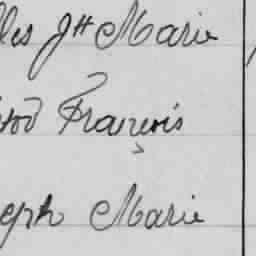 les Jh Marie
François
eph Marie